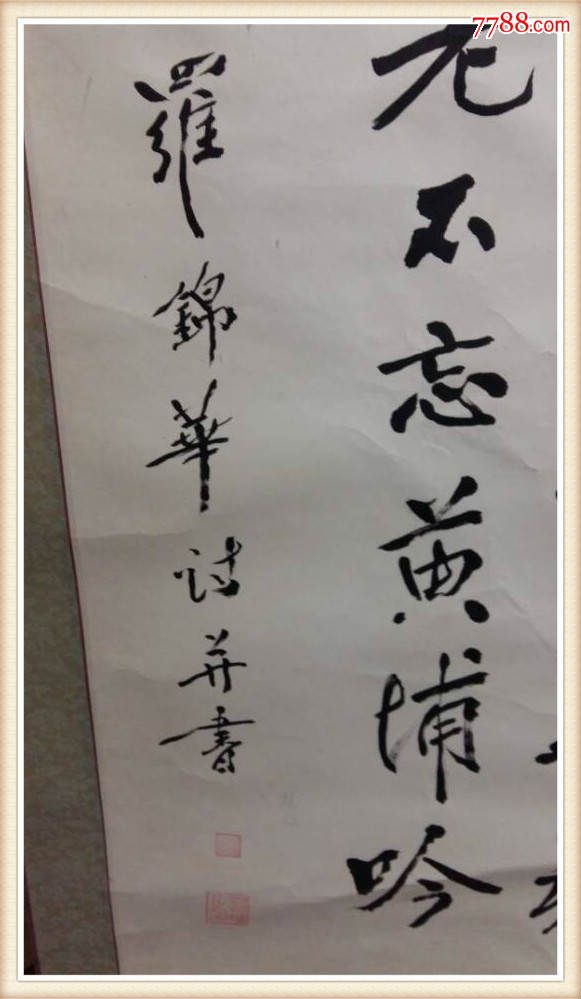 7788.com
老不忘黄埔吟
羅錦華詩并書